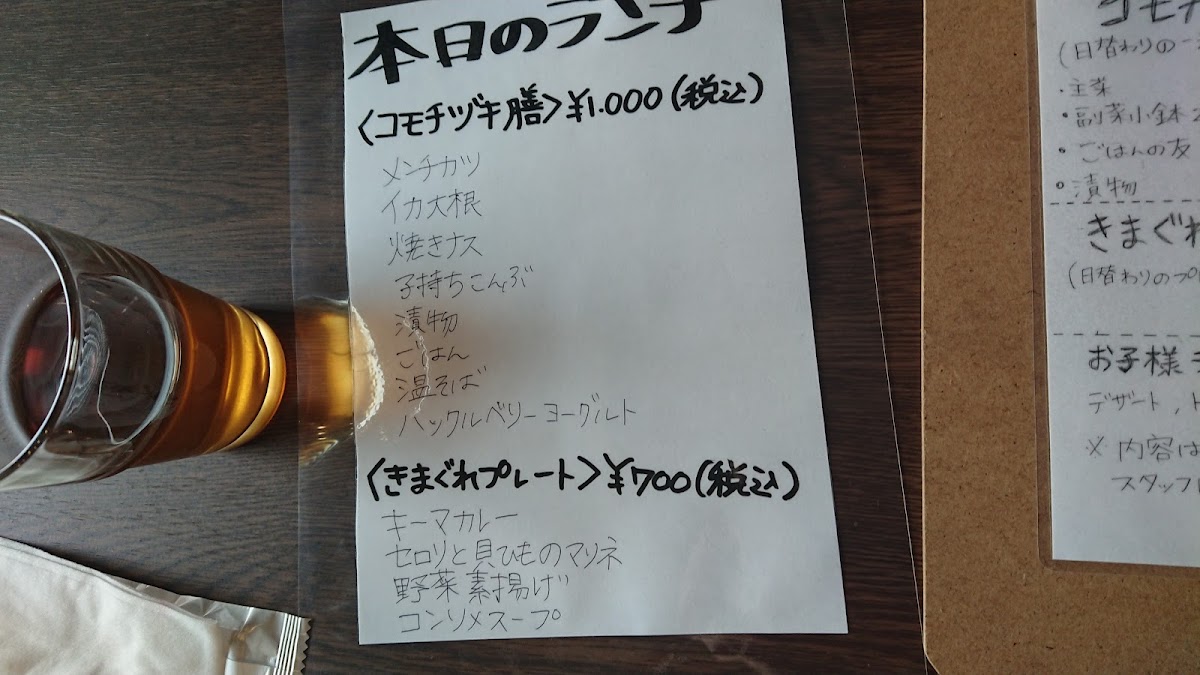 本日のランチ
〈コモチヅキ膳〉¥1.000(税込)
メンチカツ
イカ大根
焼きナス
子持ちこんぶ
漬物
ごはん
温そば
ハックルベリーヨーグルト
〈きまぐれプレート〉¥700(税込)
キーマカレー
セロリと貝ひものマリネ
野菜素揚げ
コンソメスープ
コモチ
(日替わりの
・主菜
・副菜小鉢
・ごはんの友
・漬物
きまぐれ
(日替わりのプ
お子様
デザート,
※内容は
スタッフ